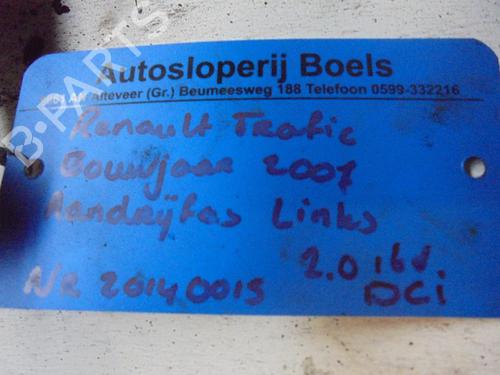 Autosloperij Boels
Alteveer (Gr.) Beumeesweg 188 Telefoon 0599-332216
Renault Trafic
Bouwjaar 2007
Aandrijfas Links
2.0 16v.
NR 20140015
DCi
B-PARTS